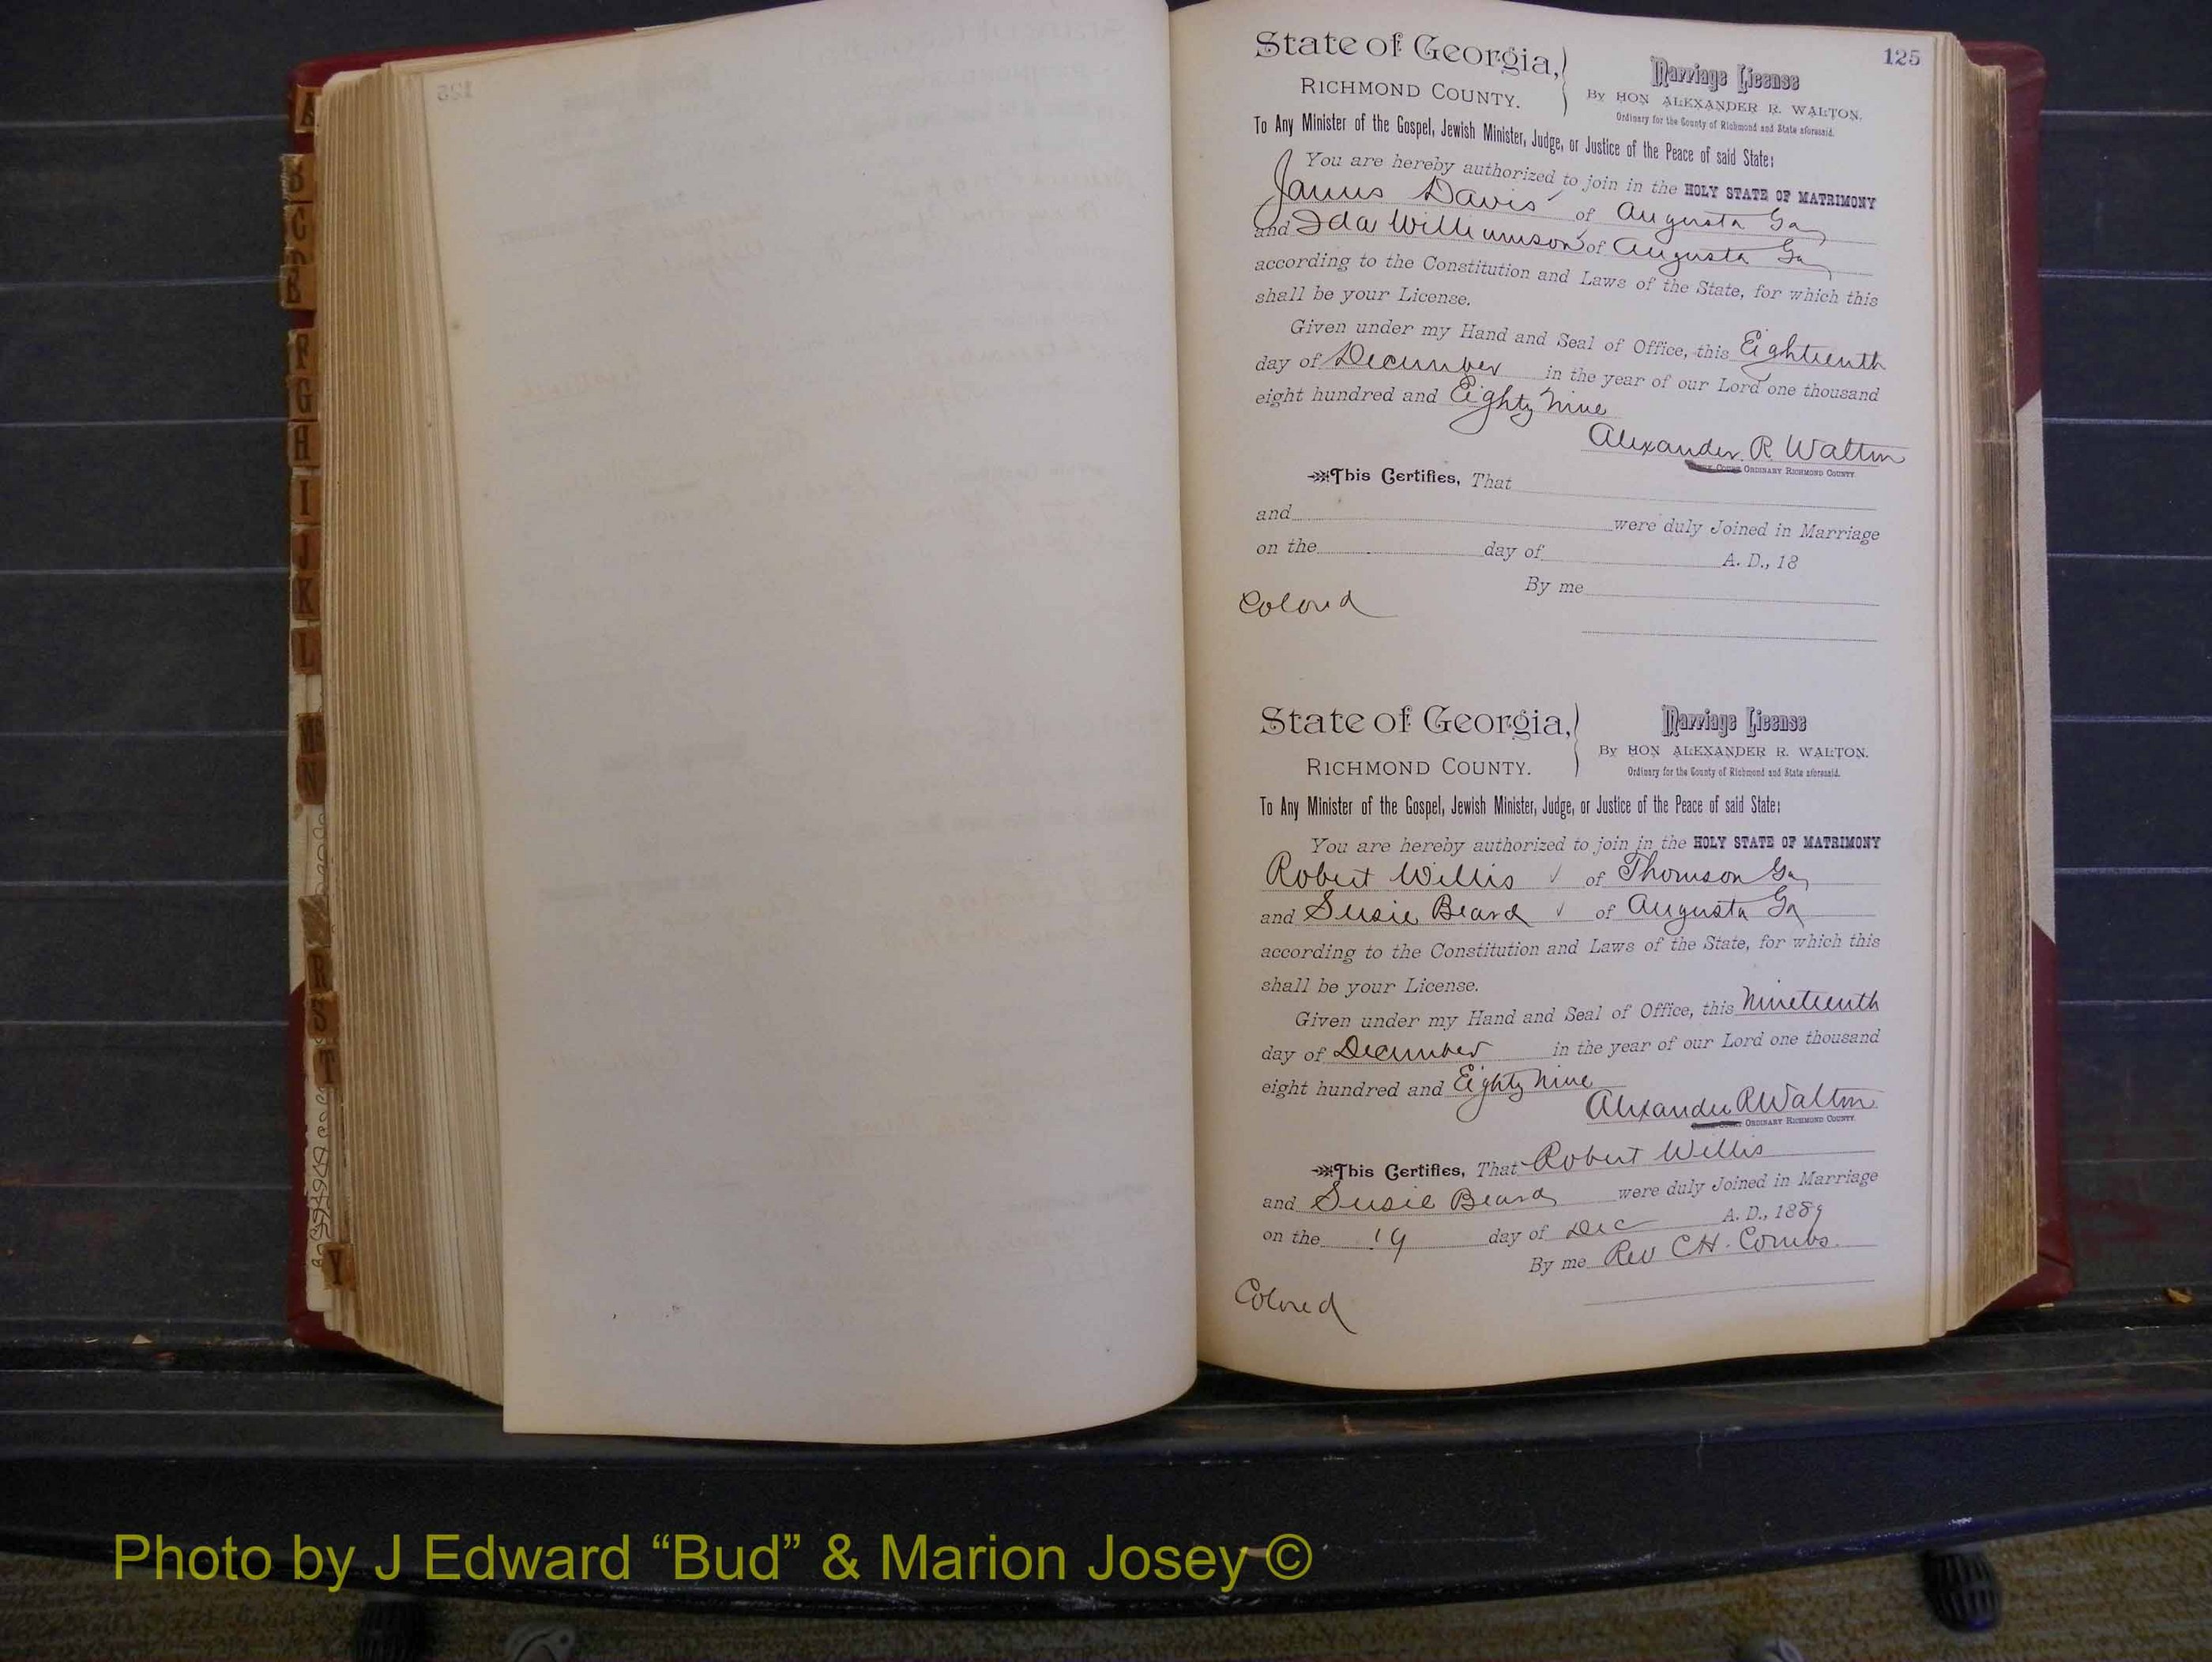 125
State of Georgia,
RICHMOND COUNTY.
Marriage License
By HON ALEXANDER R. WALTON.
Ordinary for the County of Richmond and State aforesaid.
To Any Minister of the Gospel, Jewish Minister, Judge, or Justice of the Peace of said State:
You are hereby authorized to join in the HOLY STATE OF MATRIMONY
James Davis of Augusta Ga
and Ida Williamson of Augusta Ga
according to the Constitution and Laws of the State, for which this
shall be your License.
Given under my Hand and Seal of Office, this Eighteenth
day of December in the year of our Lord one thousand
eight hundred and Eighty Nine
Alexander R Walton
ORDINARY RICHMOND COUNTY.
This Certifies, That
and were duly Joined in Marriage
on the day of A. D., 18
By me
Colored
State of Georgia,
RICHMOND COUNTY.
Marriage License
By HON ALEXANDER R. WALTON.
Ordinary for the County of Richmond and State aforesaid.
To Any Minister of the Gospel, Jewish Minister, Judge, or Justice of the Peace of said State:
You are hereby authorized to join in the HOLY STATE OF MATRIMONY
Robert Willis ✓ of Thomson Ga
and Susie Beard ✓ of Augusta Ga
according to the Constitution and Laws of the State, for which this
shall be your License.
Given under my Hand and Seal of Office, this Nineteenth
day of December in the year of our Lord one thousand
eight hundred and Eighty Nine
Alexander R Walton
ORDINARY RICHMOND COUNTY.
This Certifies, That Robert Willis
and Susie Beard were duly Joined in Marriage
on the 19 day of Dec A. D., 1889
By me Rev C H. Combs.
Colored
A
B
C
F
G
H
I
J
K
L
N
R
S
T
Y
Photo by J Edward “Bud” & Marion Josey ©